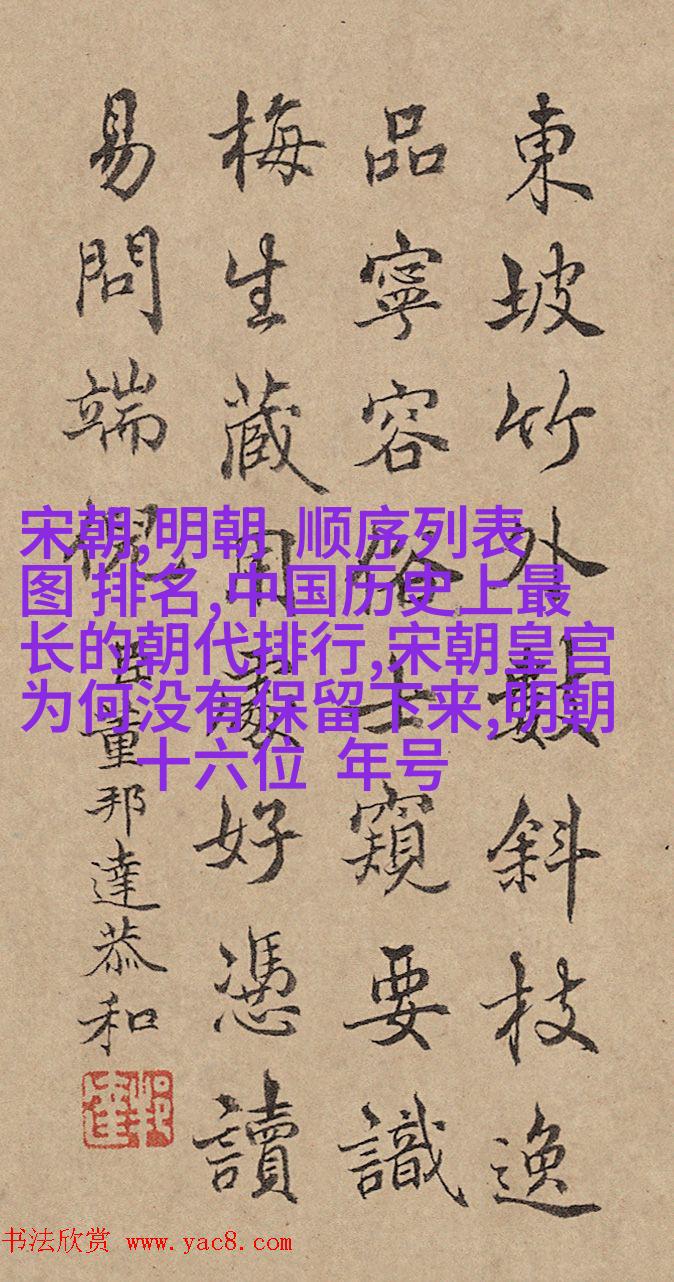 東坡竹外數斜枝逸
品寧容俗士窺要識
梅生藏用處好憑讀
易問端倪
臣董邦達恭和
宋朝,明朝 顺序列表
图 排名,中国历史上最
长的朝代排行,宋朝皇宫
为何没有保留下来,明朝
十六位 年号
书法欣赏 www.yac8.com